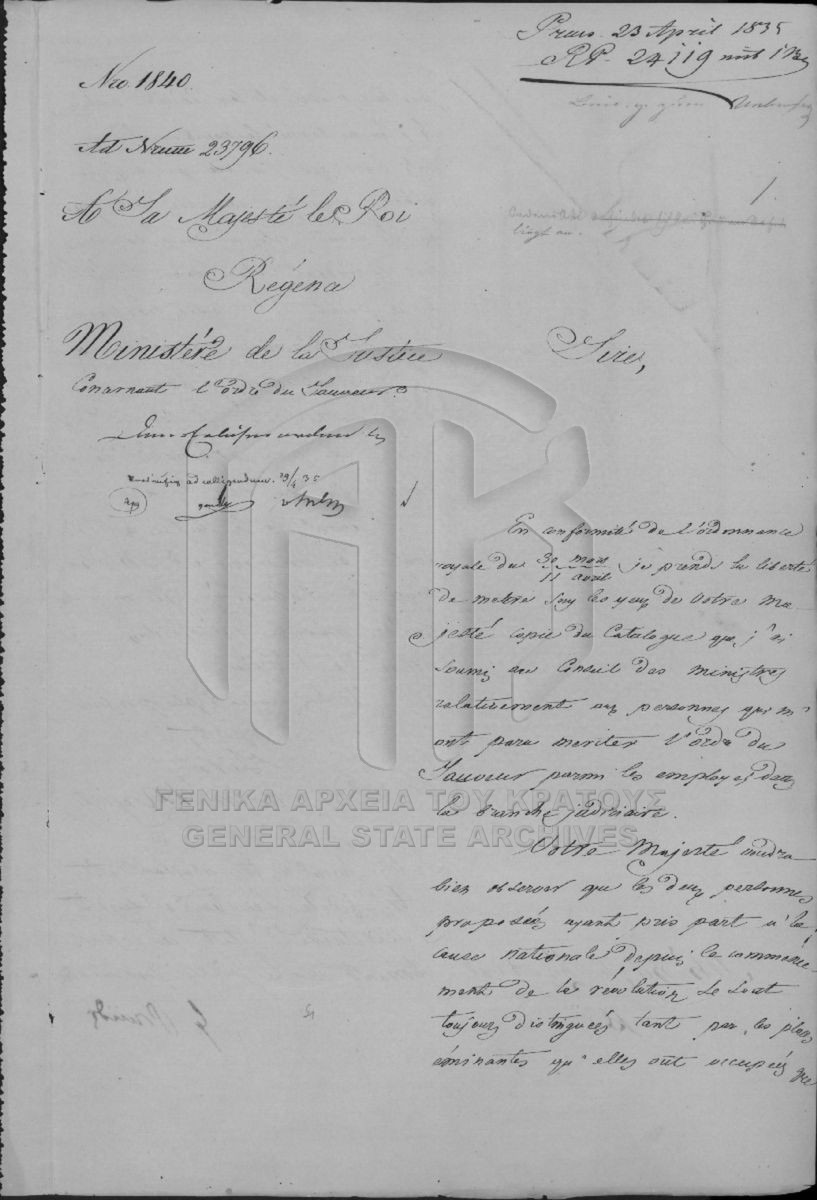 Praes. 23 April 1835
RP. 24119 mit 1 B
Nro. 1840.
Ad Num 23796.
A Sa Majesté le Roi
Régence
1.
Ministére de la Justice
Sire,
Consernant l'ordre du Sauveur.
ad colligendum. 29/4 35
En conformité de l'ordonnance
royale du 30 mars / 11 avril je prends la liberté
de metre sous les yeux de Votre Ma
jesté copie du Catalogue que j'ai
soumis au Conseil des Ministres
relativement aux personnes qui m'
ont paru meriter l'ordre du
Sauveur parmi les employes dans
la branche judiciaire.
Votre Majesté voudra
bien observer que les deux personnes
proposées ayant pris part à la
cause nationale depuis le commence
ment de la révolution, se sont
toujours distinguées tant par les places
éminantes qu'elles ont occupées que
ΓΕΝΙΚΑ ΑΡΧΕΙΑ ΤΟΥ ΚΡΑΤΟΥΣ
GENERAL STATE ARCHIVES